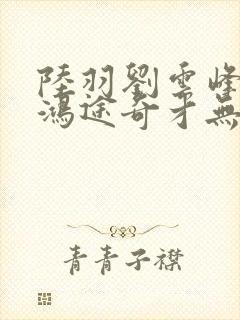 陸羽劉雲峰
鴻途奇才無
青青子襟